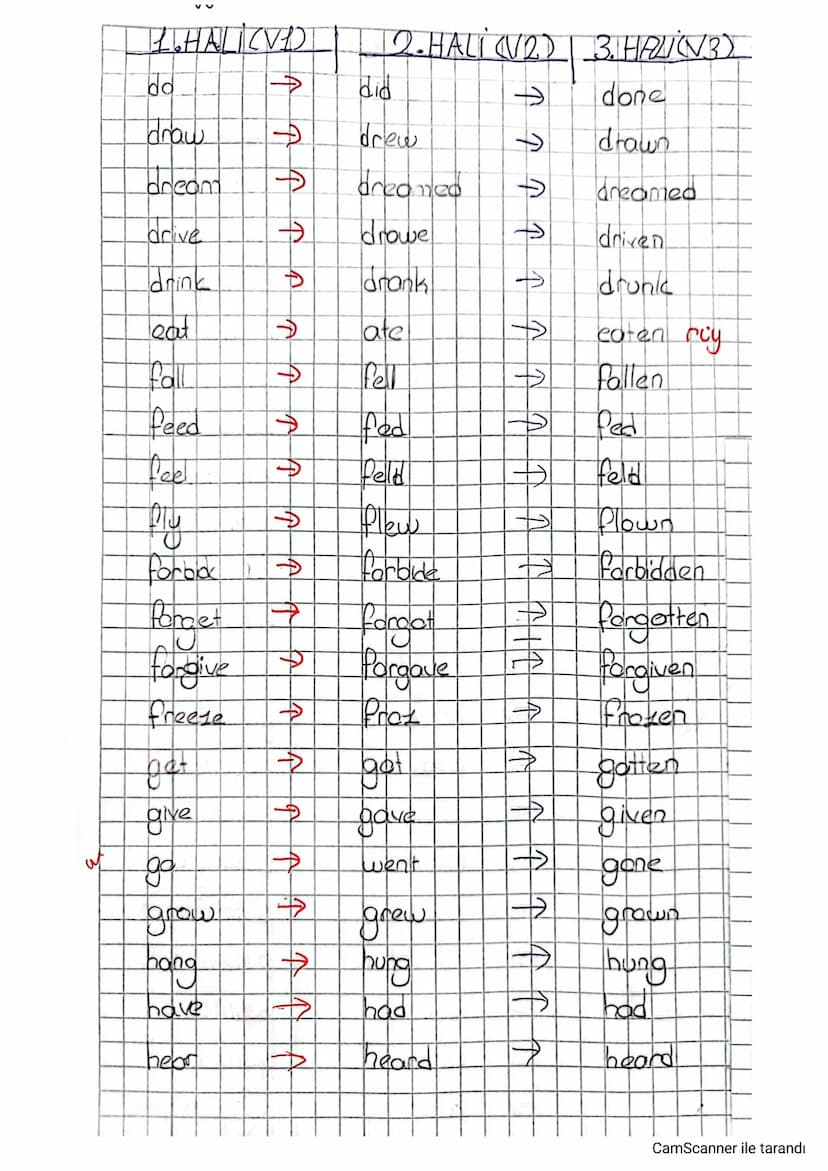 1.HALİ(V1) 2.HALİ (V2) 3.HALİ(V3)
do → did → done
draw → drew → drawn
dream → dreamed → dreamed
drive → drowe → driven
drink → drank → drunk
eat → ate → eaten
fall → fell → fallen
feed → fed → fed
feel → feld → feld
fly → flew → flown
→ → forbidden
forget → forgot → forgotten
forgive → forgave → forgiven
freeze → froz → frozen
get → got → gotten
give → gave → given
go → went → gone
grow → grew → grown
hang → hung → hung
have → had → had
hear → heard → heard
CamScanner ile tarandı